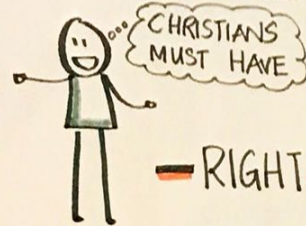 CHRISTIANS
MUST HAVE
RIGHT